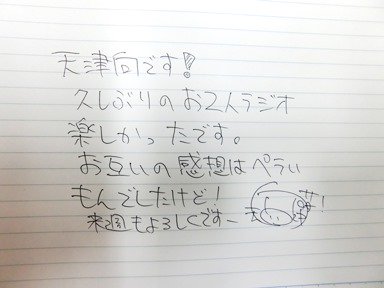 天津向です!
久しぶりのお2人ラジオ
楽しかったです。
お互いの感想はペラい
もんでしたけど!
来週もよろしくですー